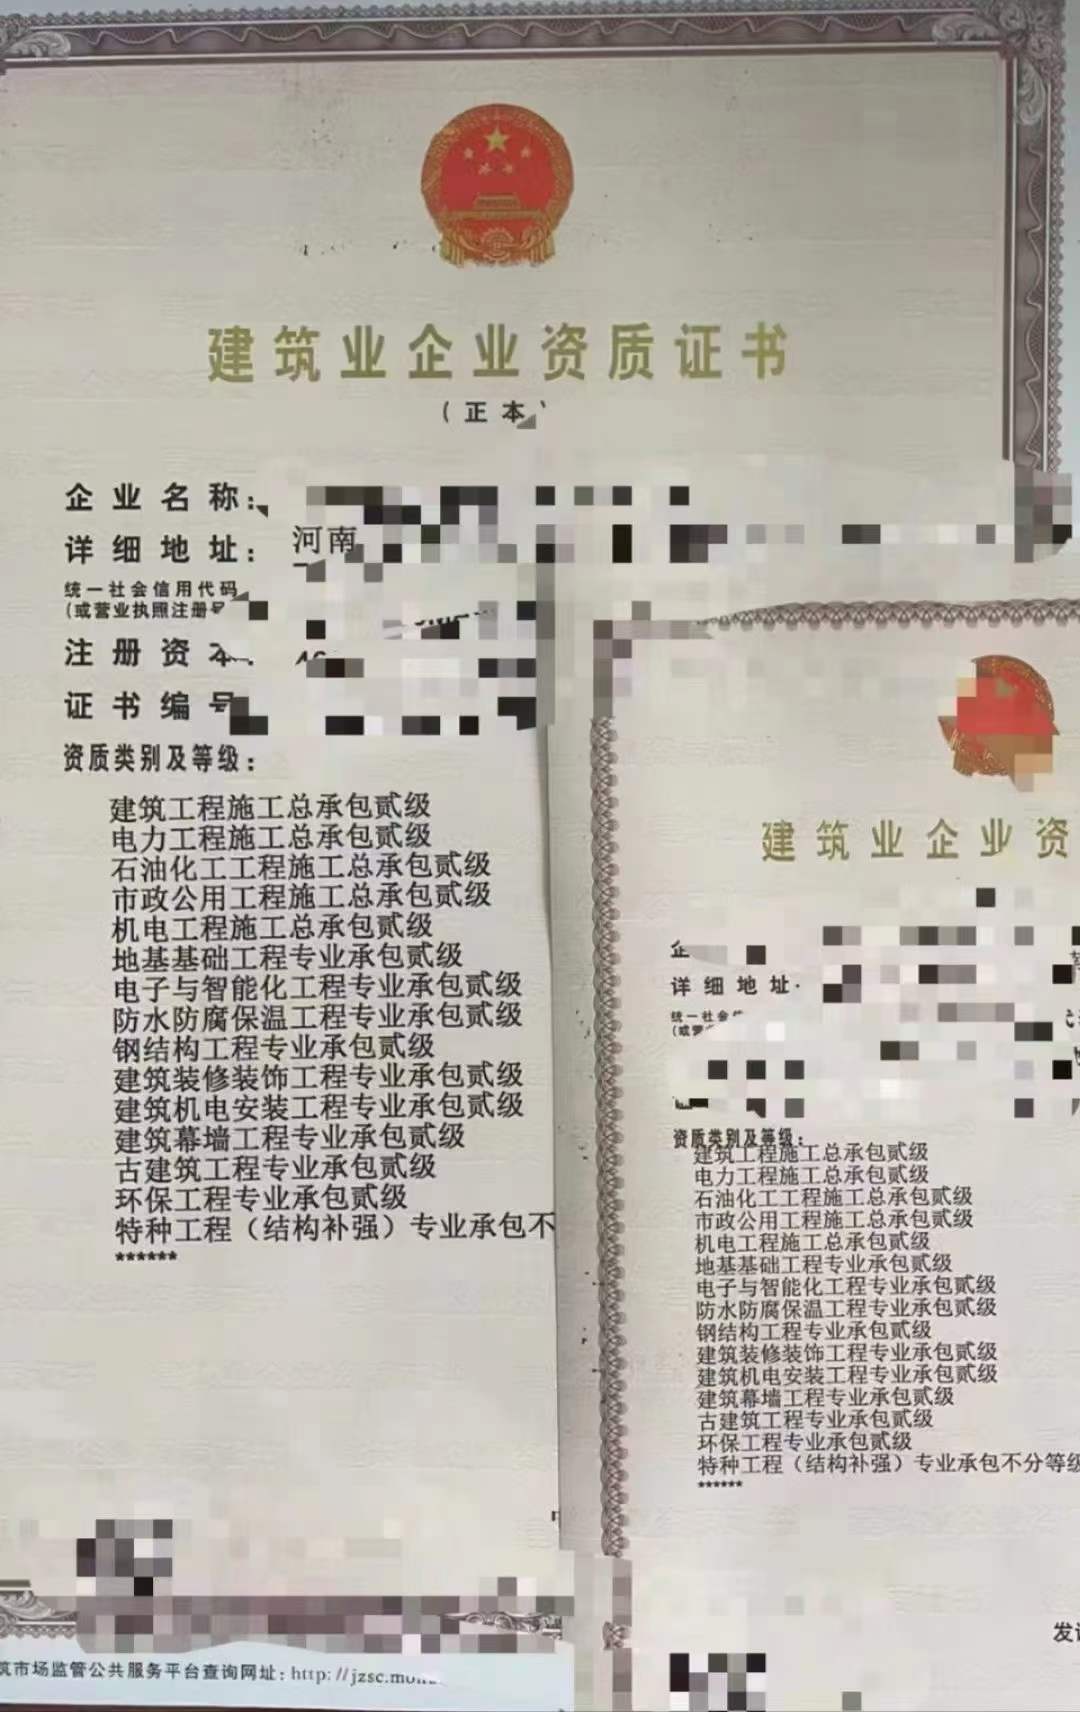 建筑业企业资质证书
（正本
企业名称：
详细地址：河南
统一社会信用代码
(或营业执照注册号
注册资本：
证书编号
资质类别及等级：
建筑工程施工总承包贰级
电力工程施工总承包贰级
石油化工工程施工总承包贰级
市政公用工程施工总承包贰级
机电工程施工总承包贰级
地基基础工程专业承包贰级
电子与智能化工程专业承包贰级
防水防腐保温工程专业承包贰级
钢结构工程专业承包贰级
建筑装修装饰工程专业承包贰级
建筑机电安装工程专业承包贰级
建筑幕墙工程专业承包贰级
古建筑工程专业承包贰级
环保工程专业承包贰级
特种工程（结构补强）专业承包不
******
筑市场监管公共服务平台查询网址：http://jzsc.moh
建筑业企业资
企
详细地址
统一社会信
(或营
资质类别及等级：
建筑工程施工总承包贰级
电力工程施工总承包贰级
石油化工工程施工总承包贰级
市政公用工程施工总承包贰级
机电工程施工总承包贰级
地基基础工程专业承包贰级
电子与智能化工程专业承包贰级
防水防腐保温工程专业承包贰级
钢结构工程专业承包贰级
建筑装修装饰工程专业承包贰级
建筑机电安装工程专业承包贰级
建筑幕墙工程专业承包贰级
古建筑工程专业承包贰级
环保工程专业承包贰级
特种工程（结构补强）专业承包不分等级
******
发证